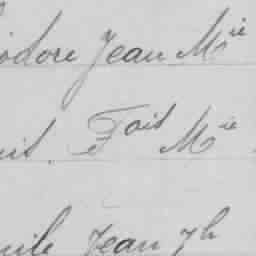 odore Jean Mie
uis. Fois Mie
mile Jean Jh